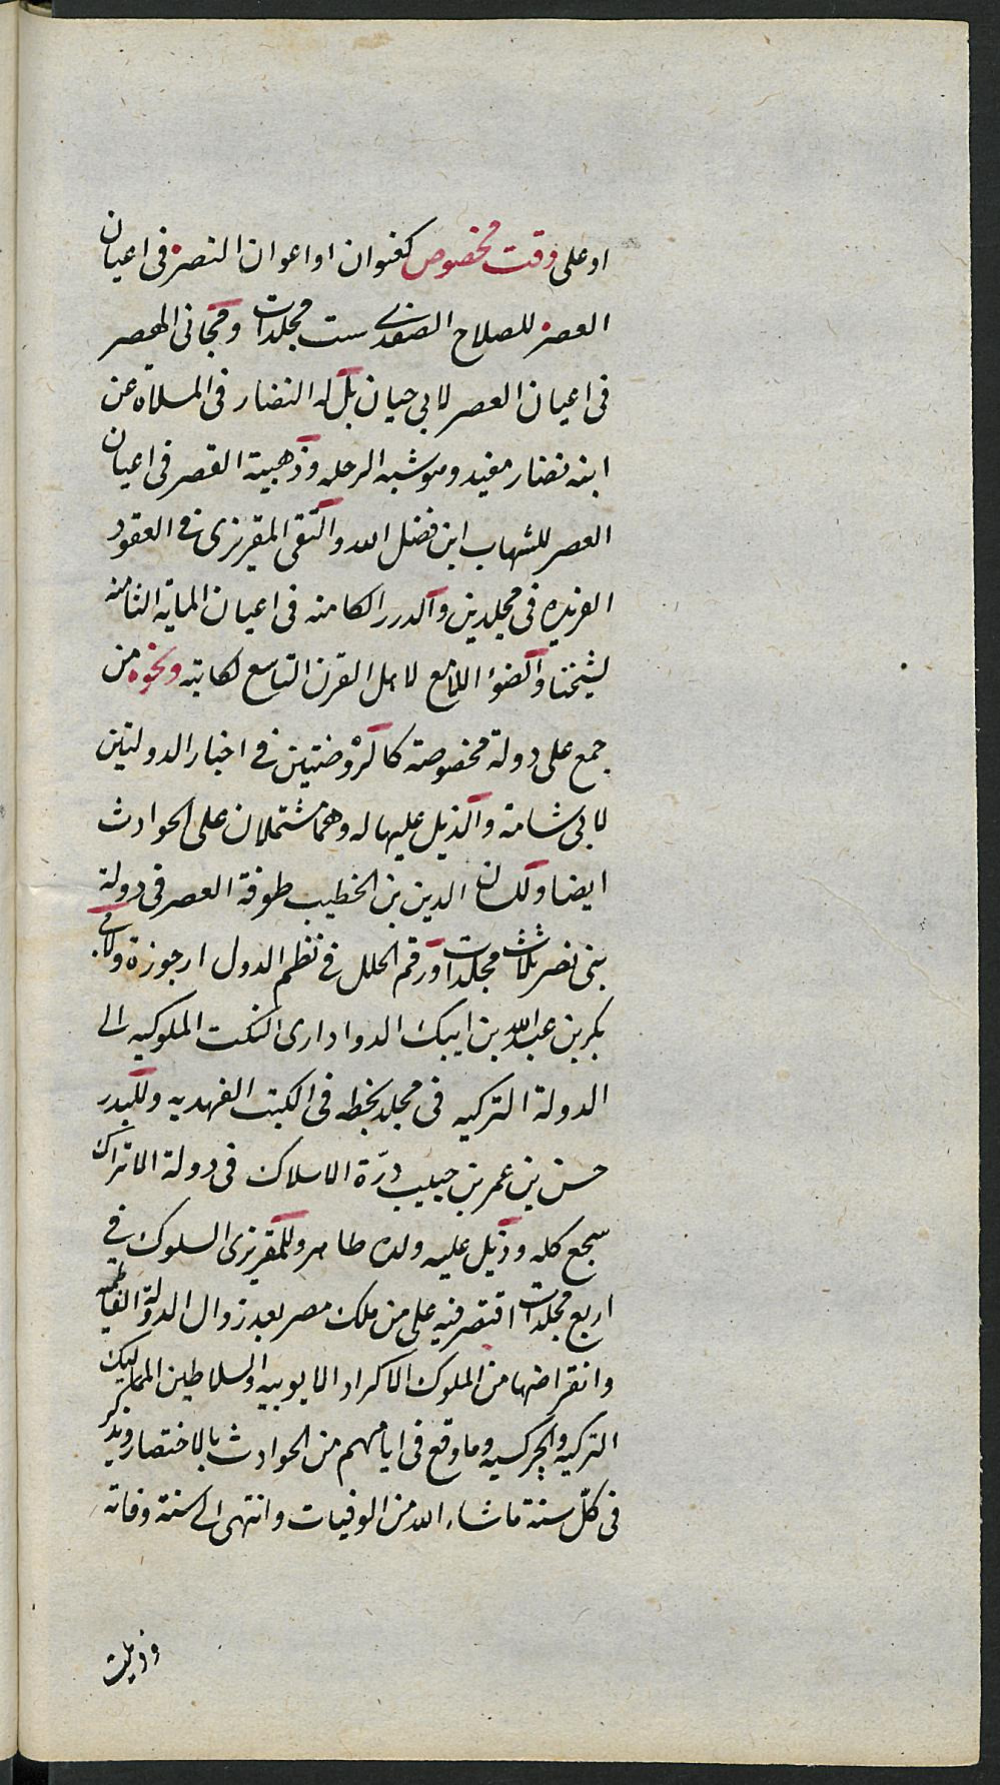 او على وقت مخصوص كعنوان او اعوان النصر في اعيان
العصر للصلاح الصفدي ست مجلدات ومجاني الهصر
في اعيان العصر لابي حيان بل له النضار في المسلاة عن
ابنه نضار مفيد وهو شبه الرحله وذهبية القصر في اعيان
العصر للشهاب ابن فضل الله والتقي المقريزي في العقود
الفريده في مجلدين والدرر الكامنه في اعيان الماية الثامنه
لشيخنا والضوء اللامع لاهل القرن التاسع لكاتبه ونحوه من
جمع على دولة مخصوصة كالروضتين في اخبار الدولتين
لابي شامة والذيل عليها له وهما مشتملان على الحوادث
ايضا ولسان الدين بن الخطيب طرفة العصر في دولة
بني نصر ثلاث مجلدات ورقم الحلل في نظم الدول ارجوزة ولابي
بكر بن عبد الله بن ايبك الدواداري النكت الملوكيه الى
الدولة التركيه في مجلد بخطه في الكتب الفهديه وللبدر
حسن بن عمر بن حبيب درّة الاسلاك في دولة الاتراك
سجع كله وذيل عليه ولده طاهر وللمقريزي السلوك في
اربع مجلدات اقتصر فيه على من ملك مصر بعد زوال الدولة الفاطميه
وانقراضها من الملوك الاكراد الايوبيه والسلاطين المماليك
التركيه والجركسيه وما وقع في ايامهم من الحوادث بالاختصار ويذكر
في كلّ سنة ما شاء الله من الوفيات وانتهى الى سنة وفاته
وذيلت